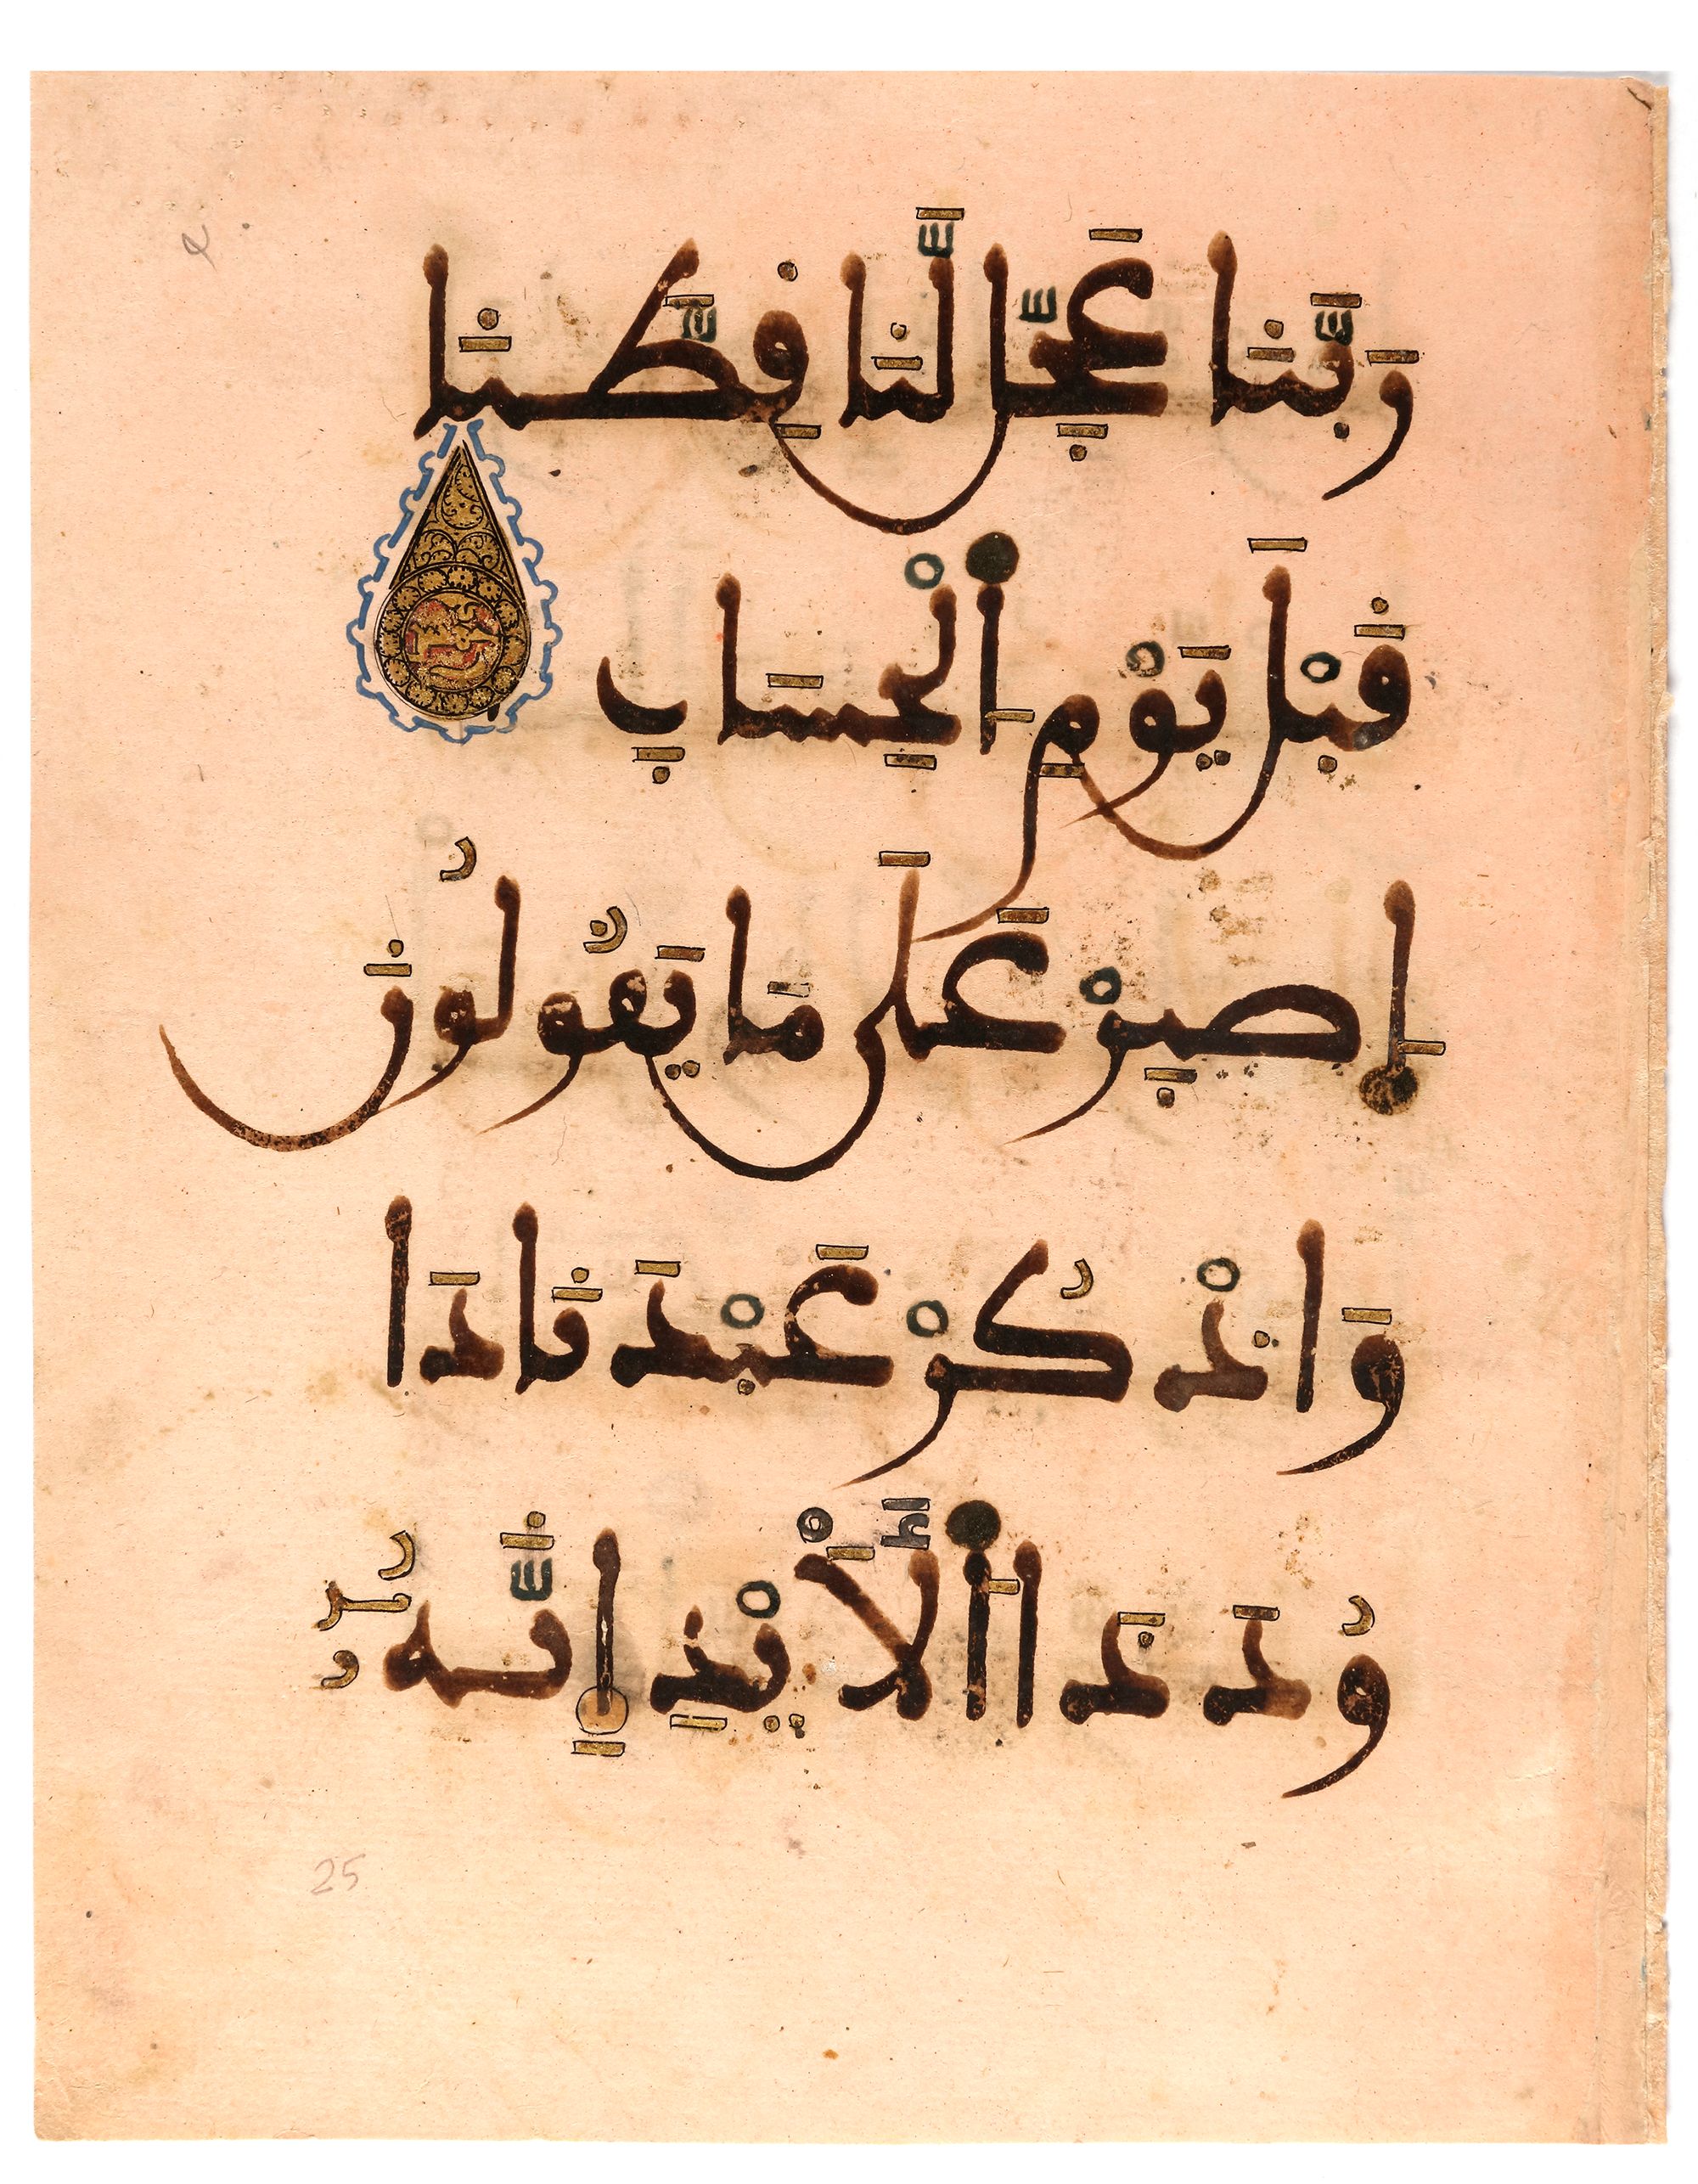 رَبَّنَا عَجِّل لَّنَا قِطَّنَا
قَبْلَ يَوْمِ الْحِسَابِ
اصْبِرْ عَلَى مَا يَقُولُونَ
وَاذْكُرْ عَبْدَنَا دَا
وُدَ ذَا الْأَيْدِ إِنَّهُ
25